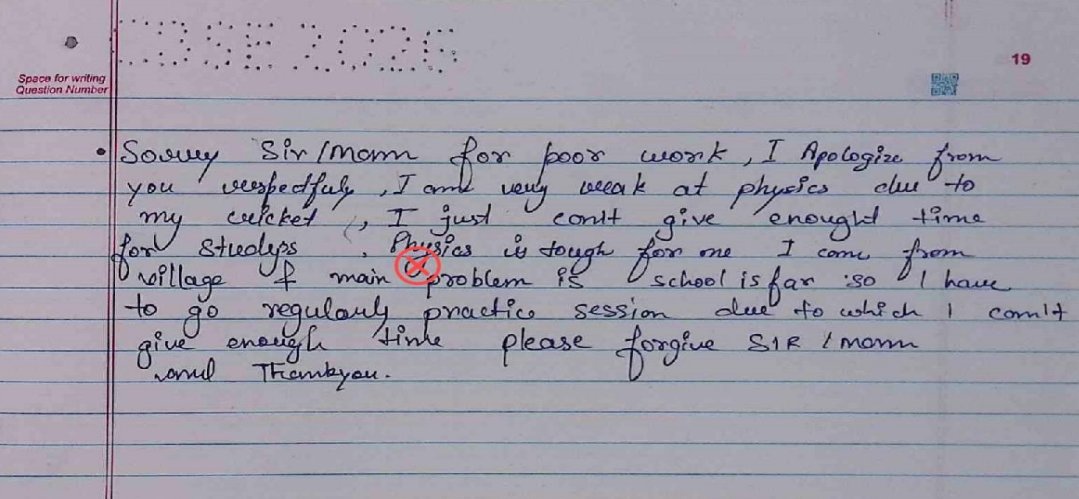 CBSE 2026
19
Space for writing
Question Number
• Sorry Sir/mam for poor work, I Apologize from
you respectfuly, I am very weak at physics due to
my cricket (, I just can't give enought time
for Studyps . Physics is tough for me I come from
village & main problem is school is far so I have
to go regularly practice session due to which I can't
give enough time please forgive SIR / mam
and Thankyou.